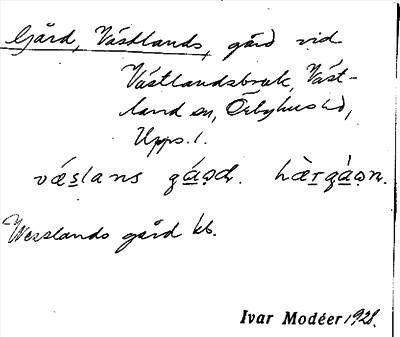 Gård, Västlands, gård vid
Västlandsbruk, Väst-
land sn, Örbyhus hd,
Upps. l.
væslans gáọḍ. hæ̀rgàọṇ.
Wesslands gård kb.
Ivar Modéer 1928.